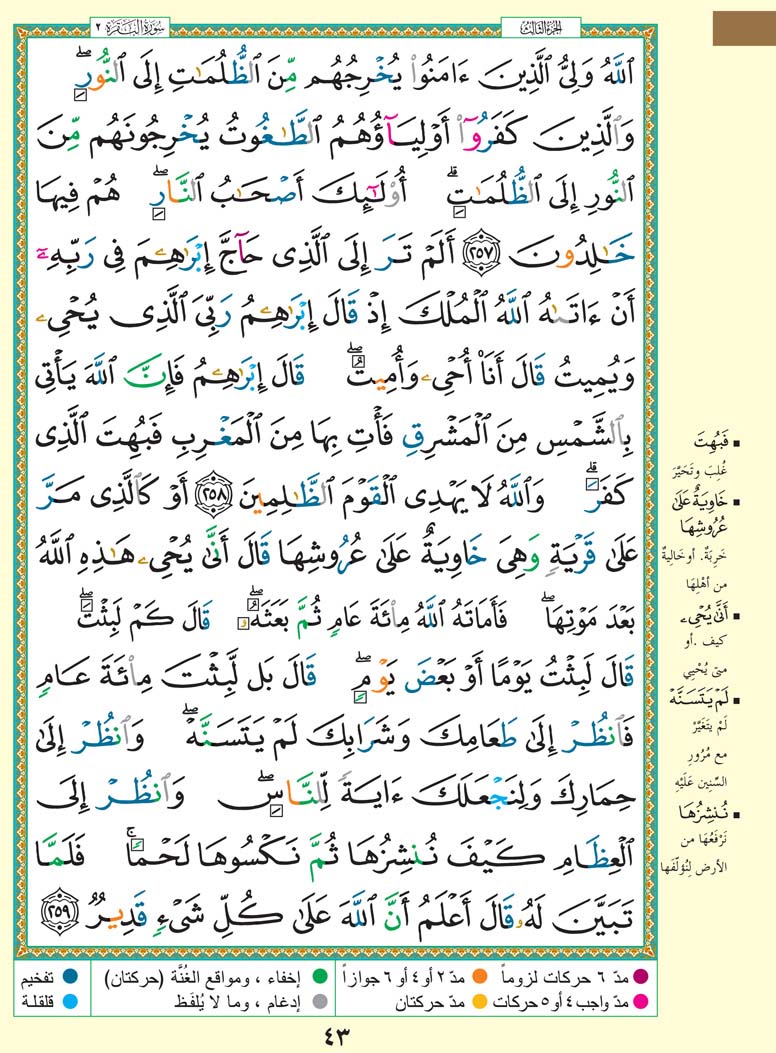 الجزء الثالث
سورة البقرة ٢
ٱللَّهُ وَلِيُّ ٱلَّذِينَ ءَامَنُوا۟ يُخْرِجُهُم مِّنَ ٱلظُّلُمَـٰتِ إِلَى ٱلنُّورِ ۖ
وَٱلَّذِينَ كَفَرُوٓا۟ أَوْلِيَآؤُهُمُ ٱلطَّـٰغُوتُ يُخْرِجُونَهُم مِّنَ
ٱلنُّورِ إِلَى ٱلظُّلُمَـٰتِ ۗ أُو۟لَـٰٓئِكَ أَصْحَـٰبُ ٱلنَّارِ ۖ هُمْ فِيهَا
خَـٰلِدُونَ ﴿٢٥٧﴾ أَلَمْ تَرَ إِلَى ٱلَّذِى حَآجَّ إِبْرَٰهِـۧمَ فِى رَبِّهِۦٓ
أَنْ ءَاتَىٰهُ ٱللَّهُ ٱلْمُلْكَ إِذْ قَالَ إِبْرَٰهِـۧمُ رَبِّىَ ٱلَّذِى يُحْىِۦ
وَيُمِيتُ قَالَ أَنَا۠ أُحْىِۦ وَأُمِيتُ ۖ قَالَ إِبْرَٰهِـۧمُ فَإِنَّ ٱللَّهَ يَأْتِى
بِٱلشَّمْسِ مِنَ ٱلْمَشْرِقِ فَأْتِ بِهَا مِنَ ٱلْمَغْرِبِ فَبُهِتَ ٱلَّذِى
كَفَرَ ۗ وَٱللَّهُ لَا يَهْدِى ٱلْقَوْمَ ٱلظَّـٰلِمِينَ ﴿٢٥٨﴾ أَوْ كَٱلَّذِى مَرَّ
عَلَىٰ قَرْيَةٍ وَهِىَ خَاوِيَةٌ عَلَىٰ عُرُوشِهَا قَالَ أَنَّىٰ يُحْىِۦ هَـٰذِهِ ٱللَّهُ
بَعْدَ مَوْتِهَا ۖ فَأَمَاتَهُ ٱللَّهُ مِا۟ئَةَ عَامٍ ثُمَّ بَعَثَهُۥ ۖ قَالَ كَمْ لَبِثْتَ ۖ
قَالَ لَبِثْتُ يَوْمًا أَوْ بَعْضَ يَوْمٍ ۖ قَالَ بَل لَّبِثْتَ مِا۟ئَةَ عَامٍ
فَٱنظُرْ إِلَىٰ طَعَامِكَ وَشَرَابِكَ لَمْ يَتَسَنَّهْ ۖ وَٱنظُرْ إِلَىٰ
حِمَارِكَ وَلِنَجْعَلَكَ ءَايَةً لِّلنَّاسِ ۖ وَٱنظُرْ إِلَى
ٱلْعِظَامِ كَيْفَ نُنشِزُهَا ثُمَّ نَكْسُوهَا لَحْمًا ۚ فَلَمَّا
تَبَيَّنَ لَهُۥ قَالَ أَعْلَمُ أَنَّ ٱللَّهَ عَلَىٰ كُلِّ شَىْءٍ قَدِيرٌ ﴿٢٥٩﴾
▪ فَبُهِتَ
غُلِبَ وتَحَيَّرَ
▪ خَاوِيَةٌ عَلَىٰ
عُرُوشِهَا
خَرِبَةٌ. أو خَالِيةٌ
من أهْلِها
▪ أَنَّىٰ يُحْىِۦ
كيف . أو
متى يُحْيِي
▪ لَمْ يَتَسَنَّهْ
لَمْ يتَغَيَّرْ
مع مُرُورِ
السِّنِين عَلَيْه
▪ نُنشِزُهَا
نَرْفَعُهَا من
الأرضِ لِنُؤَلِّفَها
مدّ ٦ حركات لزوماً
مدّ ٢ أو ٤ أو ٦ جوازاً
إخفاء ، ومواقع الغُنَّة (حركتان)
تفخيم
مدّ واجب ٤ أو ٥ حركات
مدّ حركتان
إدغام ، وما لا يُلفَظ
قلقلة
٤٣